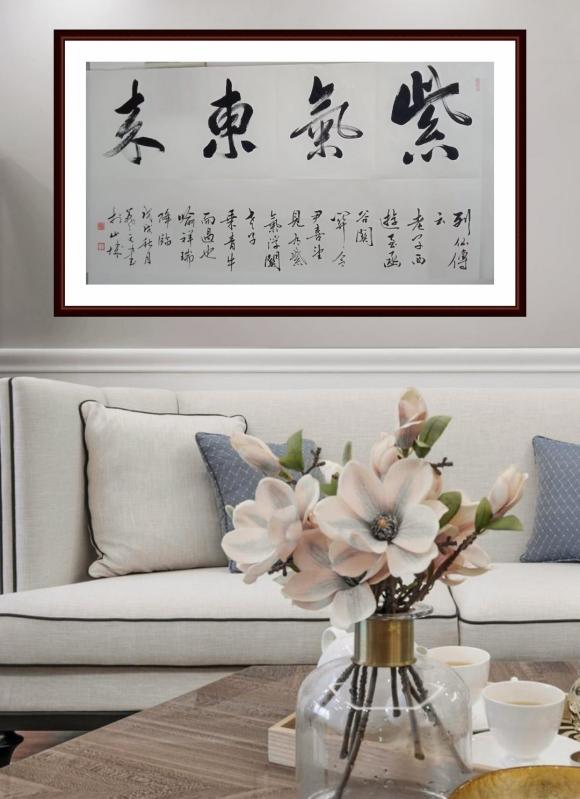 紫氣東來
列仙傳
云
老子西
遊至函
谷關
關令
尹喜望
見有紫
氣浮關
老子
乘青牛
而過也
喻祥瑞
降臨
戊戌秋月
書
於山城